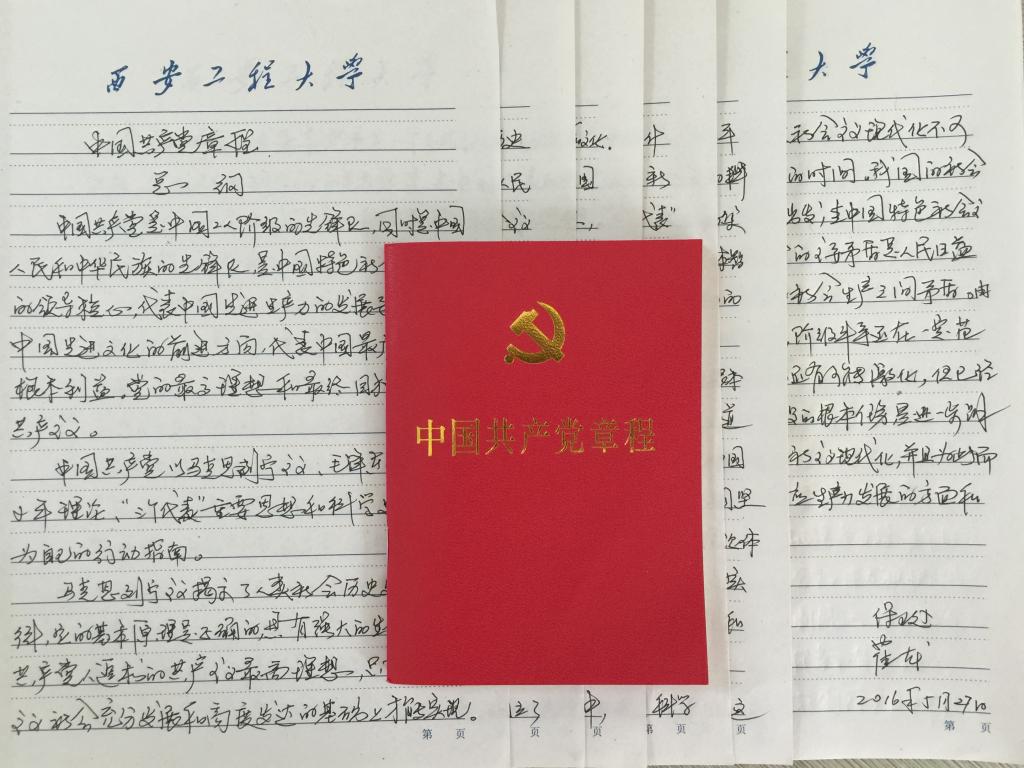 西安工程大学
中国共产党章程
总纲
中国共产党是中国工人阶级的先锋队,同时是中国
人民和中华民族的先锋队,是中国特色社
的领导核心,代表中国先进生产力的发展
中国先进文化的前进方向,代表中国最广
根本利益。党的最高理想和最终目标
共产主义。
中国共产党以马克思列宁主义、毛泽东
小平理论、“三个代表”重要思想和科学
为自己的行动指南。
马克思列宁主义揭示了人类社会历史
律,它的基本原理是正确的,具有强大的生
共产党人追求的共产主义最高理想,只
义社会充分发展和高度发达的基础上才能实现。
第 页
中国共产党章程
史
人民
义
位了
页
文化.
国
中,
页
什
社
代表”
科学
第 页
平
的
这
页
大学
社会主义现代化不可
的时间。我国的社会
出发,走中国特色社会主
的主要矛盾是人民日益
社会生产之间矛盾。由
阶级斗争还在一定范
还有可能激化,但已经
的根本任务是进一步解
社会主义现代化,并且为此而
在生产力发展的方面和
2016年5月27日
第 页